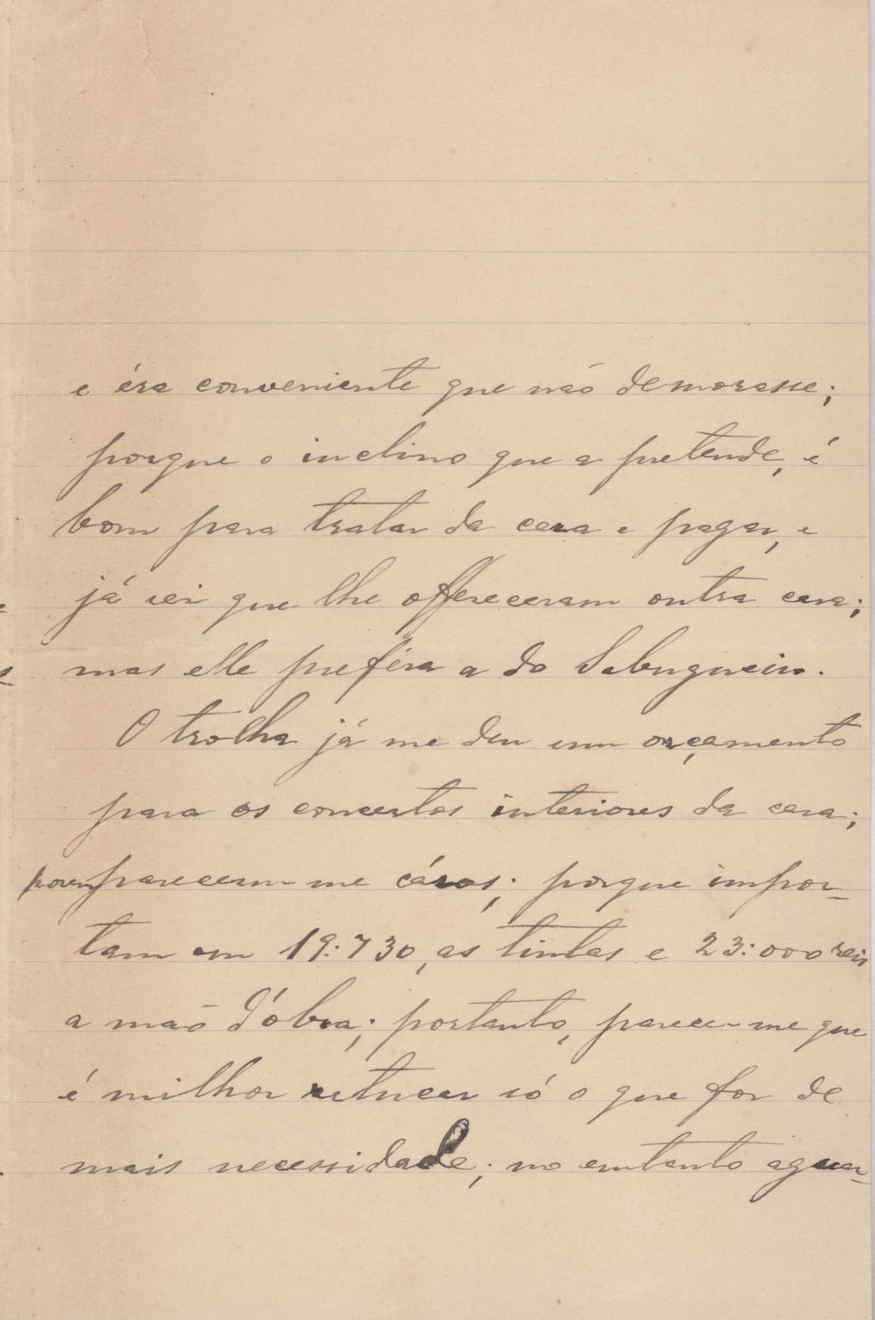 e éra conveniente que não demorasse;
porque o inclino que a pretende, é
bom para tratar da casa e pagar, e
já sei que lhe offereceram outra casa;
mas elle prefére a do Sabugueiro.
O trolha já me deu um orçamento
para os concertos interiores da casa;
porem parecem-me cáros; porque impor-
tam em 19:730, as tintas e 23:000 reis
a mão d'óbra; portanto, parece-me que
é milhor só o que for de
mais necessidade; no emtanto aguar-